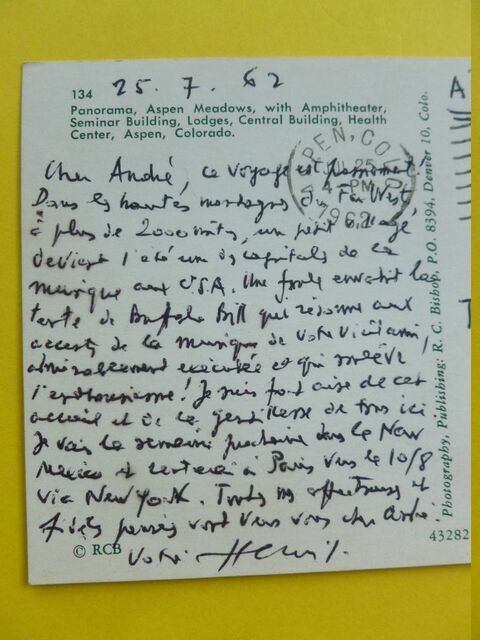 25. 7. 62
134
Panorama, Aspen Meadows, with Amphitheater,
Seminar Building, Lodges, Central Building, Health
Center, Aspen, Colorado.
ASPEN, COLO.
JUL 25
4 - PM
1962
Cher André, ce voyage est passionnant!
Dans les hautes montagnes du Far West,
à plus de 2000 mts, un petit village,
devient l'été un des capitals de la
musique aux U.S.A. Une foule envahit la
tente de Buffalo Bill qui résonne aux
accents de la musique de votre vieil ami,
admirablement exécutée et qui soulève
l'enthousiasme! Je suis fort aise de cet
accueil et de la gentillesse de tous ici
Je vais la semaine prochaine dans le New
Mexico et rentrerai à Paris vers le 10/8
via New York. Toutes mes affectueuses et
fidèles pensées vont vers vous cher André.
Votre
© RCB
43282
Photography, Publishing: R. C. Bishop, P.O. 8394, Denver 10, Colo.